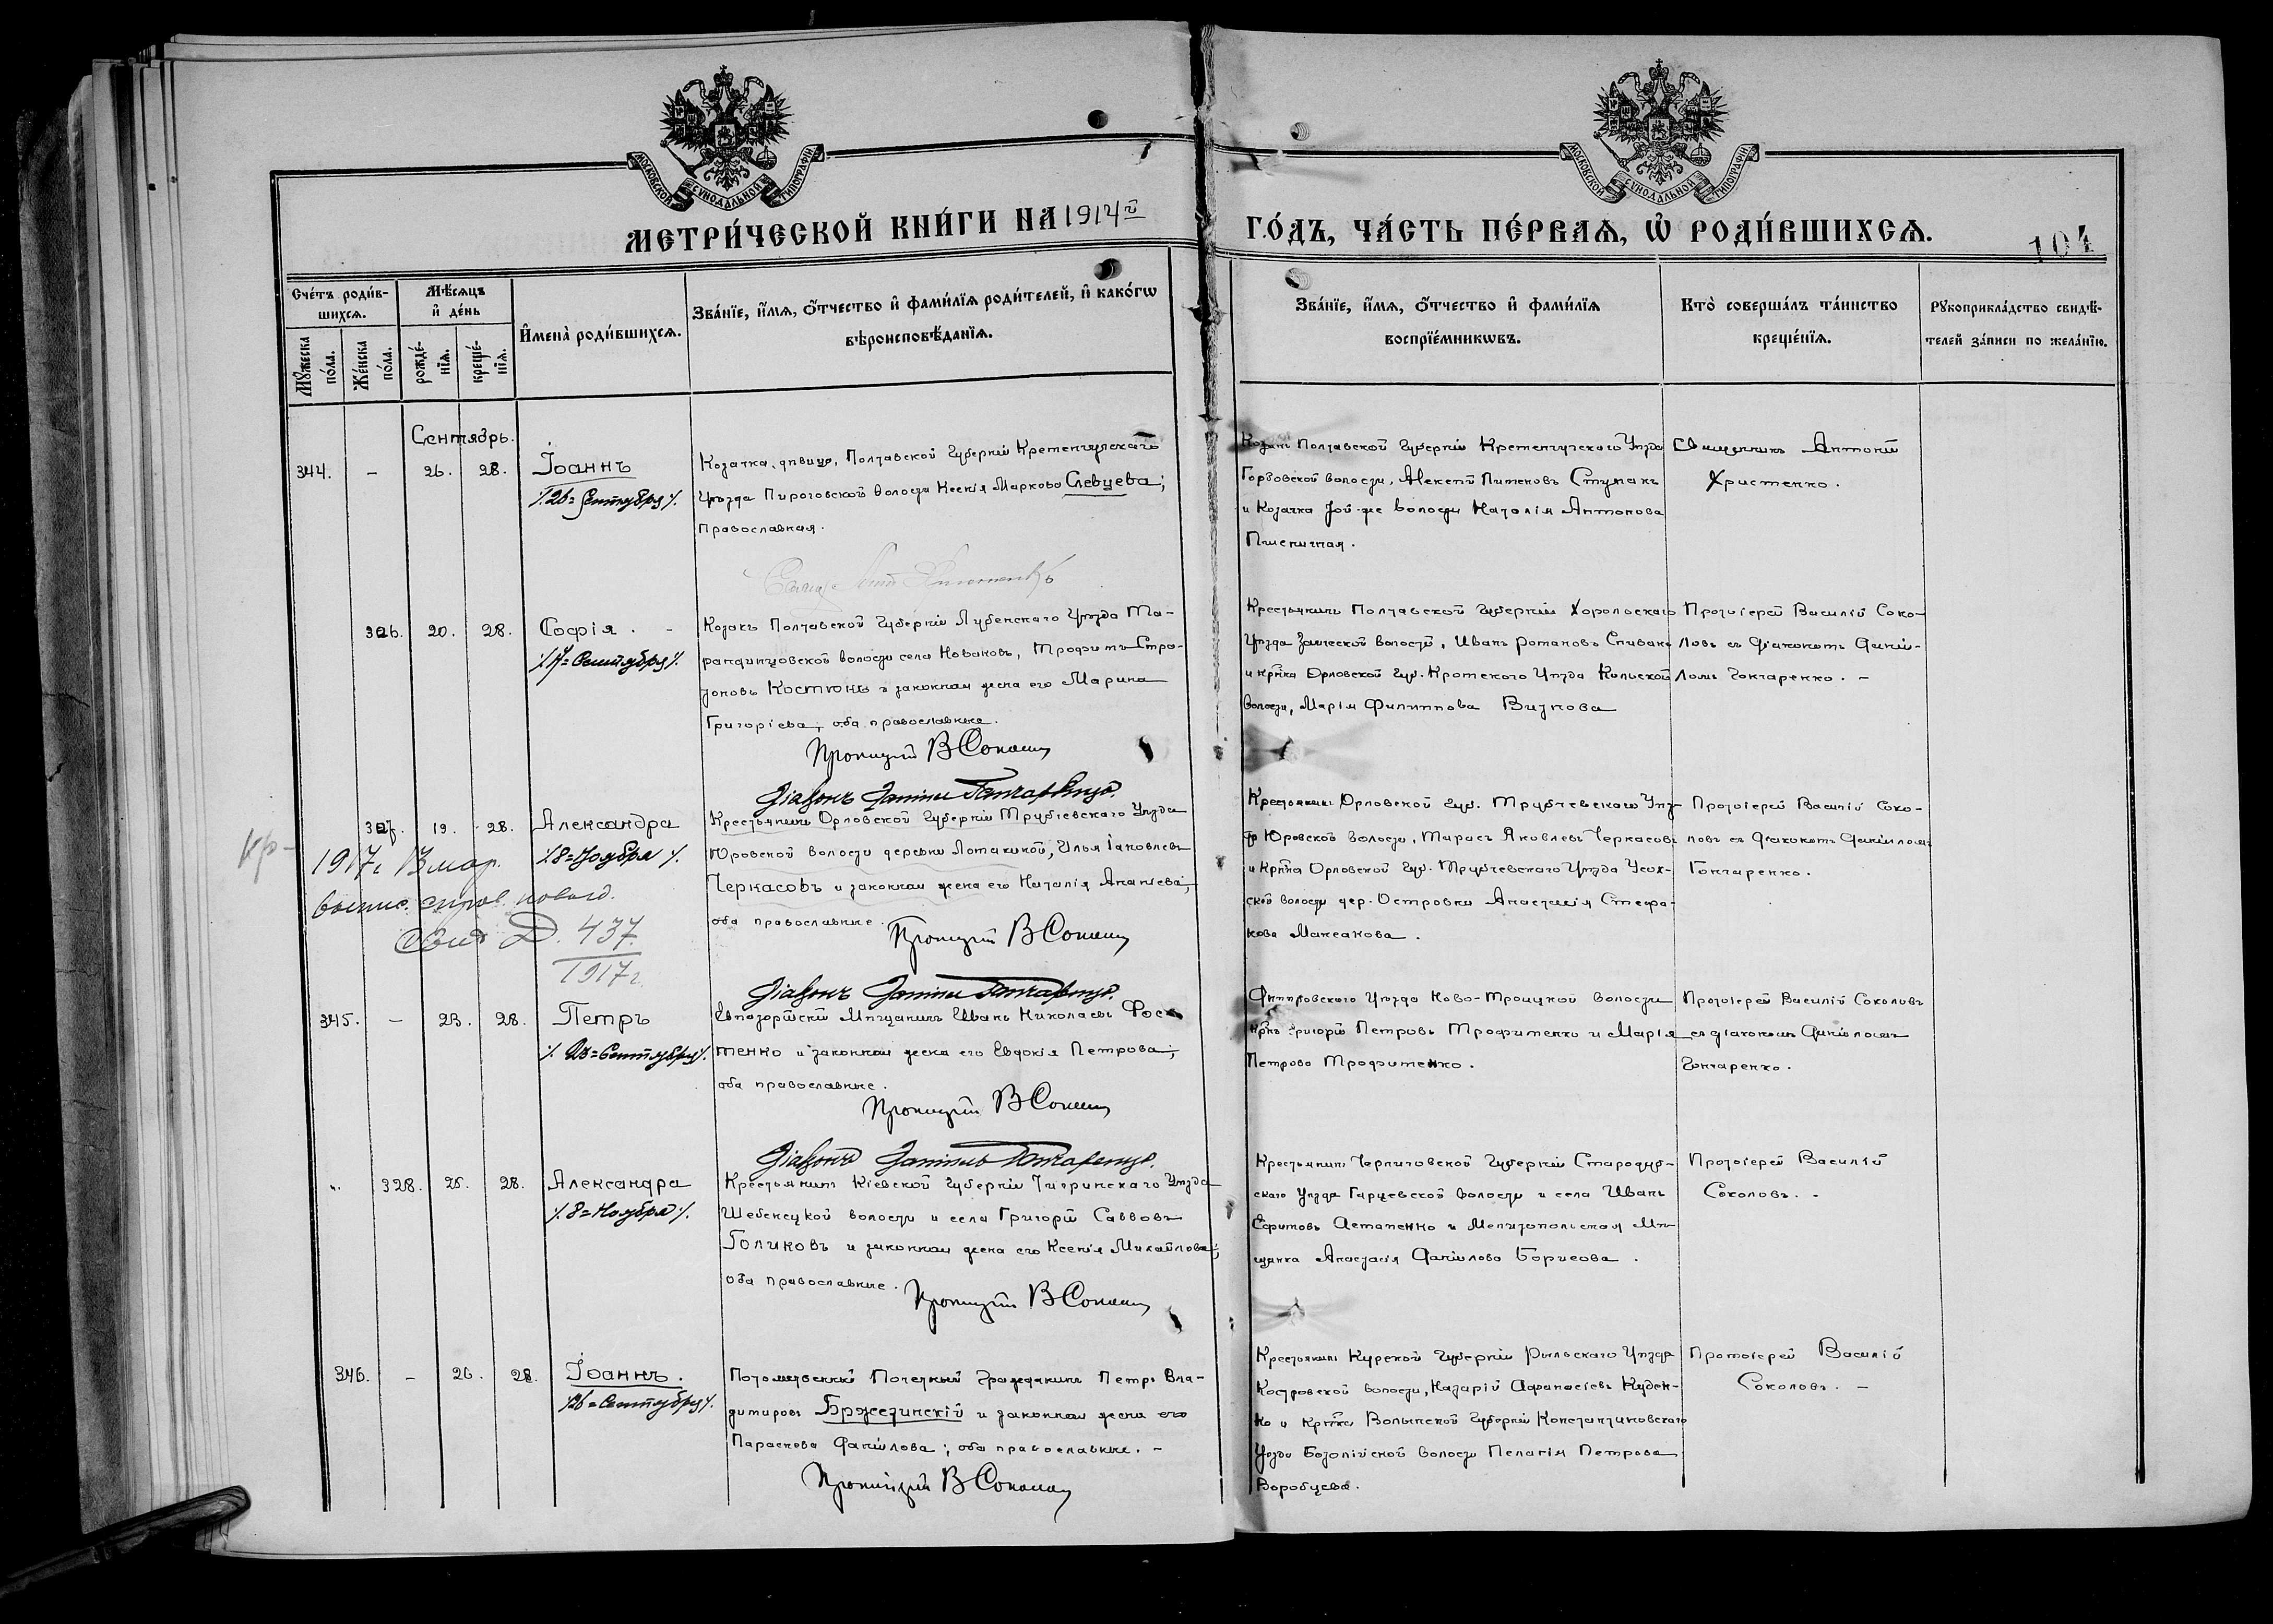 МОСКОВСКОЙ СѴНОДАЛЬНОЙ ТИПОГРАФІИ
МОСКОВСКОЙ СѴНОДАЛЬНОЙ ТИПОГРАФІИ
МЕТРИ́ЧЕСКОЙ КНИ́ГИ НА 1914й
ГО́ДЪ, ЧА́СТЬ ПЕ́РВАѦ, Ѽ РОДИ́ВШИХСѦ.
104
Сче́тъ роди́в-
шихсѧ.
Мꙋ́жеска по́ла.
Же́нска по́ла.
Мѣ́сѧцъ
и҆ де́нь
рожде́-нїѧ.
креще́-нїѧ.
И҆мена̀ роди́вшихсѧ.
Зва́нїе, и҆́мѧ, ѻ҆́тчество и҆ фами́лїѧ роди́телей, и҆ како́гѡ
вѣроисповѣ́данїѧ.
Зва́нїе, и҆́мѧ, ѻ҆́тчество и҆ фами́лїѧ
воспрїе́мникѡвъ.
Кто̀ соверша́лъ та́инство
креще́нїѧ.
Рꙋкоприкла́дство свидѣ́-
телей за́писи по жела́нїю.
Сентябрь.
344. – 26. 28. Іоаннъ
26 = Сентября
Козачка, дѣвица, Полтавской Губерніи Кременчугскаго
Уѣзда Пироговской волости Ксенія Маркова Слевцева;
православная.
Козакъ Полтавской Губерніи Кременчугскаго Уѣзда
волости, Алексѣй
и Козачка той-же волости Наталія Антонова
Пшеничная.
Священникъ Антоній
Христенко.
326. 20. 28. Софія. –
17 = Сентября
Козакъ Полтавской Губерніи Лубенскаго Уѣзда
волости села Новаковъ, Трофимъ
Костюкъ и законная жена его Марина
Григоріева, оба православные.
Протоіерей В Соколовъ
Діаконъ Даніилъ Гончаренко.
Крестьянинъ Полтавской Губерніи Хорольскаго
Уѣзда волости, Иванъ Романовъ Спивакъ
и Кр–ка Орловской Губ. Кромскаго Уѣзда
волости, Марія Филиппова
Протоіерей Василій Соко-
ловъ съ діакономъ Даніи-
ломъ Гончаренко. –
327. 19. 28. Александра
8 = Ноября
Крестьянинъ Орловской Губерніи Трубчевскаго Уѣзда
Юровской волости деревни Іаковлевъ
Черкасовъ и законная жена его Наталія Ананіева;
оба православные.
Протоіерей В Соколовъ
Діаконъ Даніилъ Гончаренко.
Кр–
1917 г 13 мар.
Д. 437
1917 г.
Крестьянинъ Орловской Губ. Трубчевскаго Уѣз-
да Юровской волости, Тарасъ Яковлевъ Черкасовъ
и Кр–ка Орловской Губ. Трубчевскаго Уѣзда Усох-
ской волости дер. Островки Анастасія Стефа-
нова Максакова.
Протоіерей Василій Соко-
ловъ съ діакономъ Даніиломъ
Гончаренко.
345. – 23. 28. Петръ
23 = Сентября
Евпаторійскій Мѣщанинъ Иванъ Николаевъ Фос-
тенко и законная жена его Евдокія Петрова;
оба православные.
Протоіерей В Соколовъ
Діаконъ Даніилъ Гончаренко.
Днѣпровскаго Уѣзда Ново-Троицкой волости
кр–нъ Григорій Петровъ Трофименко и Марія
Петрова Трофименко.
Протоіерей Василій Соколовъ
съ діакономъ Даніиломъ
Гончаренко.
328. 25. 28. Александра
8 = Ноября
Крестьянинъ Кіевской Губерніи Чигиринскаго Уѣзда
волости и села Григорій Саввовъ
Голиковъ и законная жена его Ксенія Михайлова;
оба православные.
Протоіерей В Соколовъ
Крестьянинъ Черниговской Губерніи Стародуб-
скаго Уѣзда Гарцевской волости и села Иванъ
Ефимовъ Астапенко и Мелитопольская Мѣ-
щанка Анастасія Даніилова Борисова.
Протоіерей Василій
Соколовъ. –
346. – 26. 28. Іоаннъ.
26 = Сентября
Потомственный Почетный Гражданинъ Петръ Вла-
диміровъ Бржезинскій и законная жена его
Параскева Даніилова; оба православные. –
Протоіерей В Соколовъ
Крестьянинъ Курской Губерніи Рыльскаго Уѣзда
Костровской волости, Назарій Афанасіевъ Куден-
ко и Кр–нка Волынской Губерніи Константиновскаго
Уѣзда волости Пелагія Петрова
Воробцева.
Протоіерей Василій
Соколовъ. –